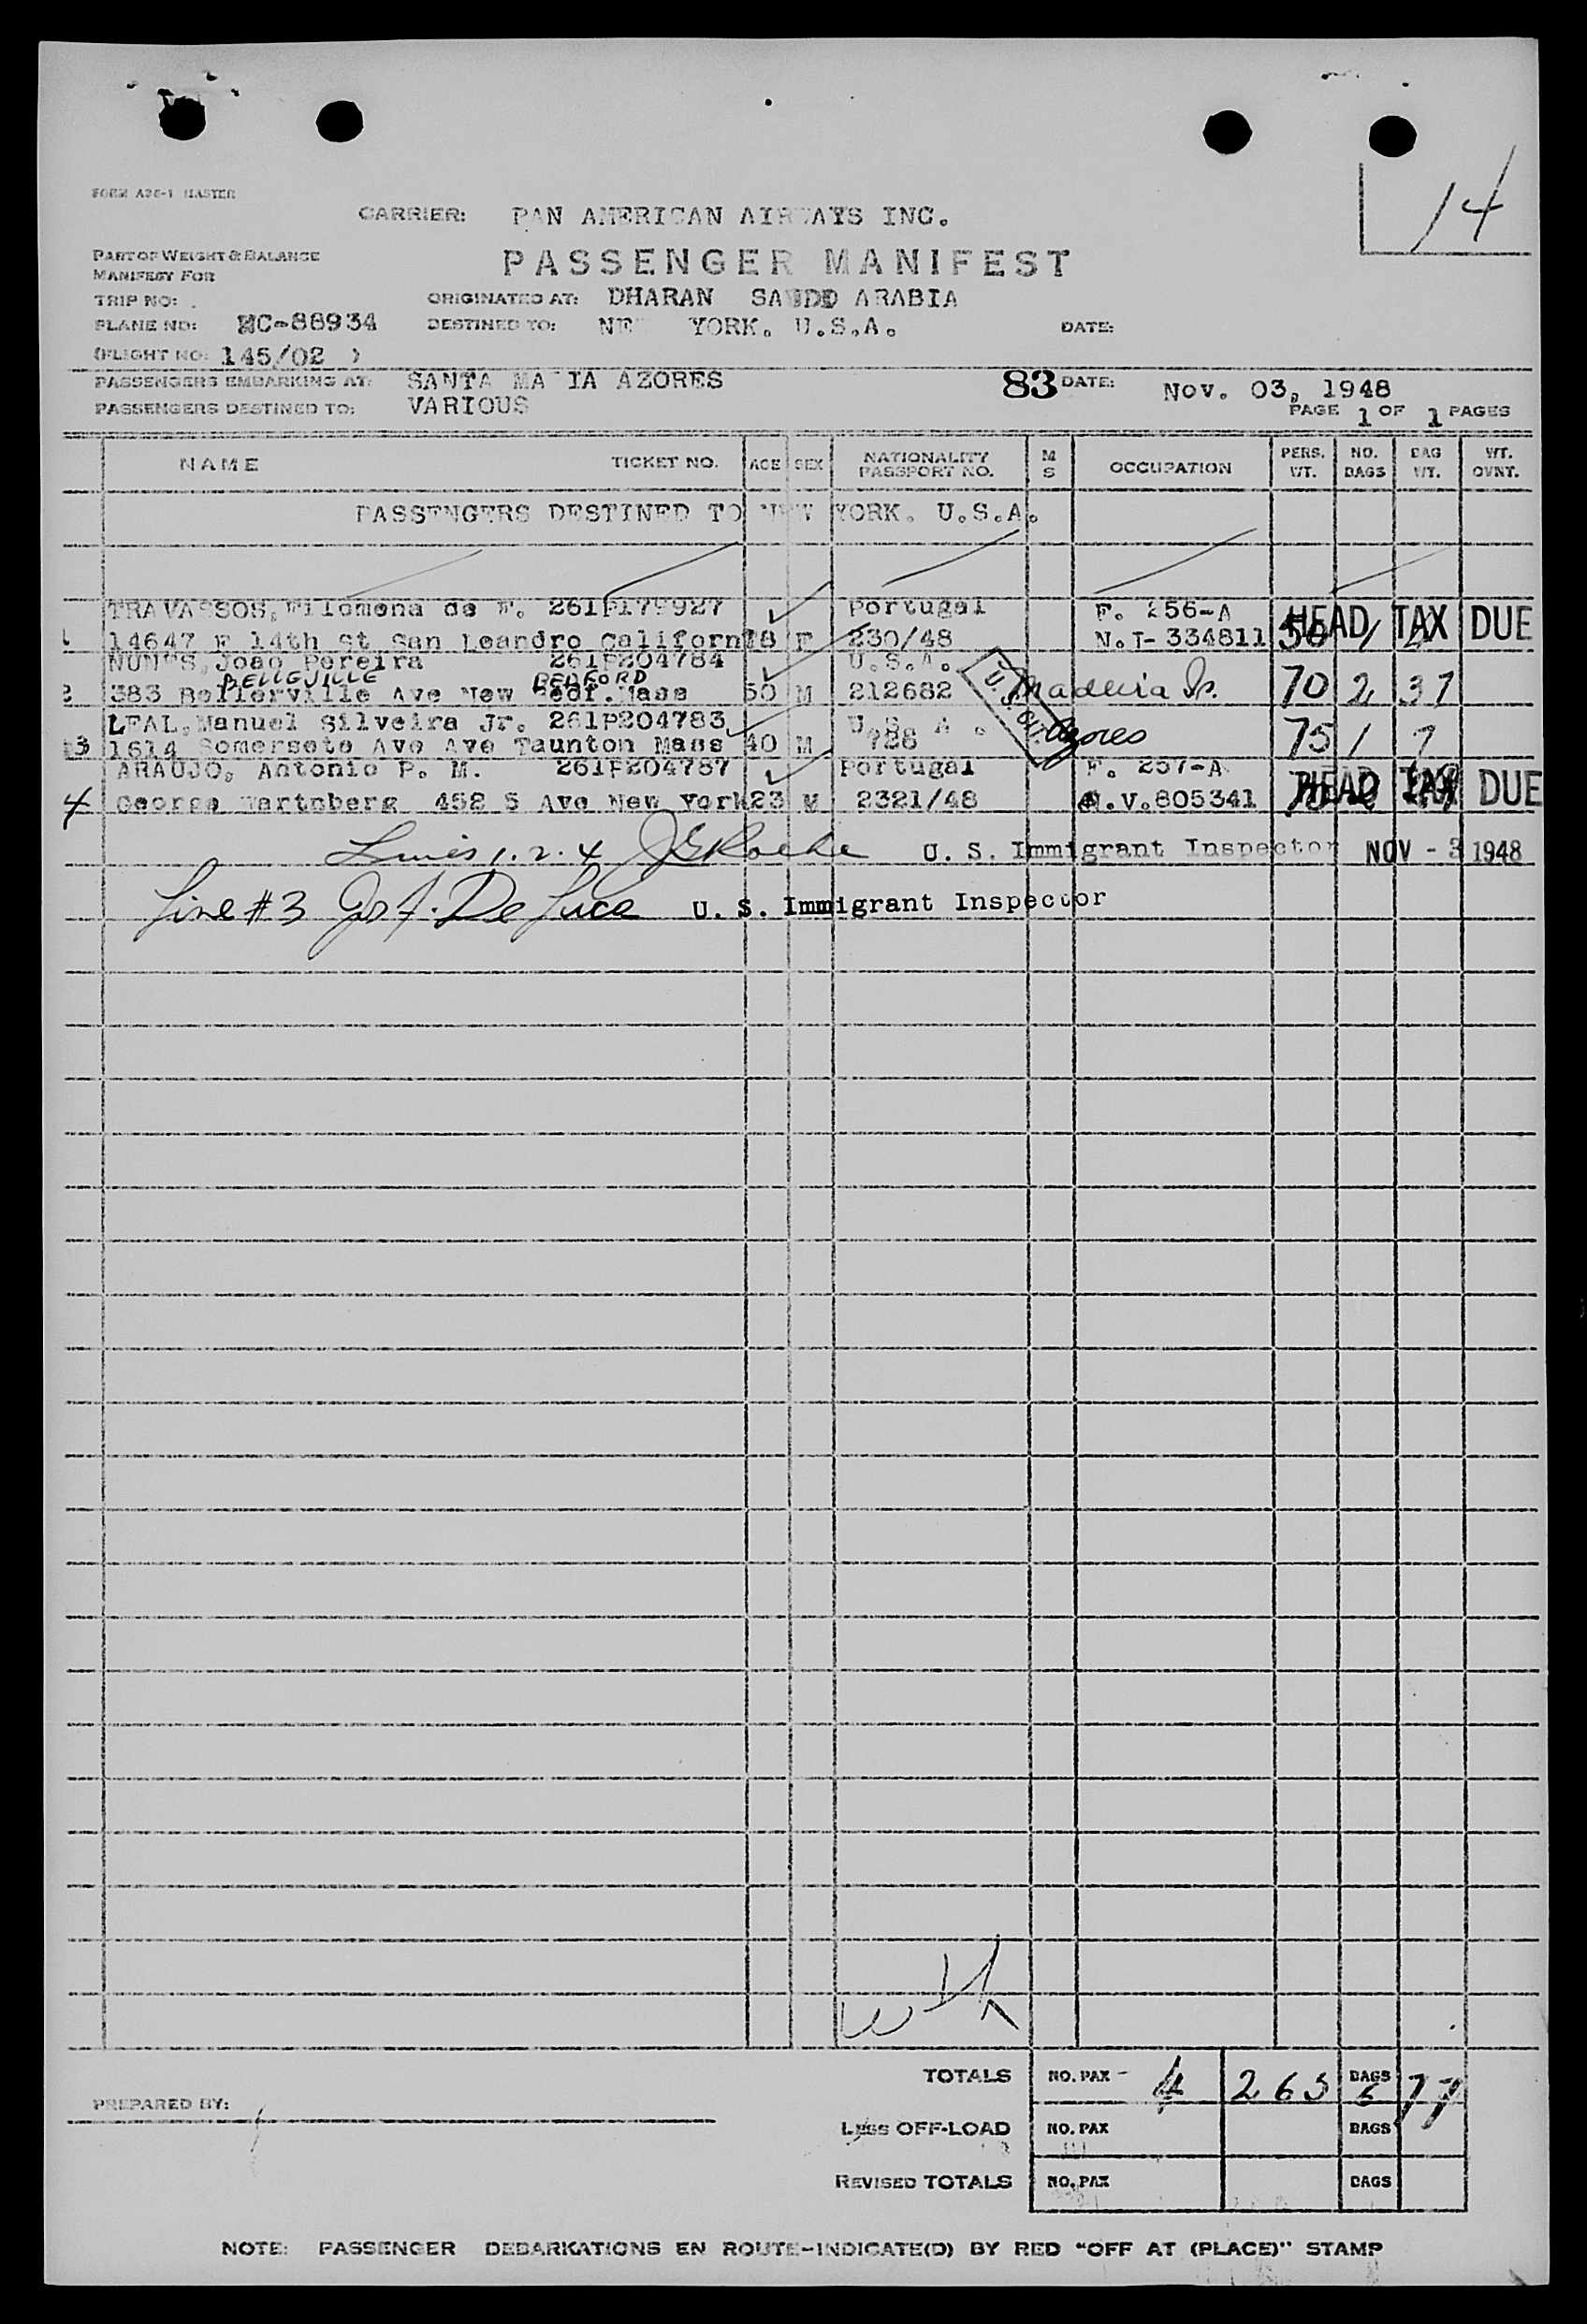 14
FORM A26-1 MASTER
CARRIER: PAN AMERICAN AIRWAYS INC.
PART OF WEIGHT & BALANCE
MANIFEST FOR
PASSENGER MANIFEST
TRIP NO:
ORIGINATED AT: DHARAN SAUDD ARABIA
PLANE NO: NC-88934
DESTINED TO: NEW YORK. U.S.A.
DATE:
(FLIGHT NO: 145/02 )
PASSENGERS EMBARKING AT: SANTA MARIA AZORES
83 DATE: Nov. 03, 1948
PASSENGERS DESTINED TO: VARIOUS
PAGE 1 OF 1 PAGES
NAME TICKET NO. AGE SEX NATIONALITY PASSPORT NO. M S OCCUPATION PERS. WT. NO. BAGS BAG WT. WT. OVNT.
PASSENGERS DESTINED TO NEW YORK. U.S.A.
TRAVASSOS, Filomena de F. 261P179927 Portugal F. 256-A HEAD TAX DUE
14647 E 14th St San Leandro California F 230/48 N.I-334811 50 1
NUNES, Joao Pereira 261P204784 U.S.A.
BELLEVILLE BEDFORD
2 383 Bellerville Ave New Bedf. Mass 50 M 212682 U.S. Cit. Madeia Is. 70 2 37
LEAL, Manuel Silveira Jr. 261P204783 U.S.A.
3 1614 Somersete Ave Ave Taunton Mass 40 M 728 Azores 75 1 7
ARAUJO, Antonio P. M. 261P204787 Portugal F. 257-A HEAD TAX DUE
4 George Wartnberg 452 5 Ave New York 23 M 2321/48 Q.V.805341
Lines 1.2.4 J E Roche U. S. Immigrant Inspector NOV - 3 1948
Line #3 Jos A. De Luca U. S. Immigrant Inspector
TOTALS NO. PAX - 4 265 BAGS 6 77
PREPARED BY:
LESS OFF-LOAD NO. PAX BAGS
REVISED TOTALS NO. PAX BAGS
NOTE: PASSENGER DEBARKATIONS EN ROUTE-INDICATE(D) BY RED "OFF AT (PLACE)" STAMP